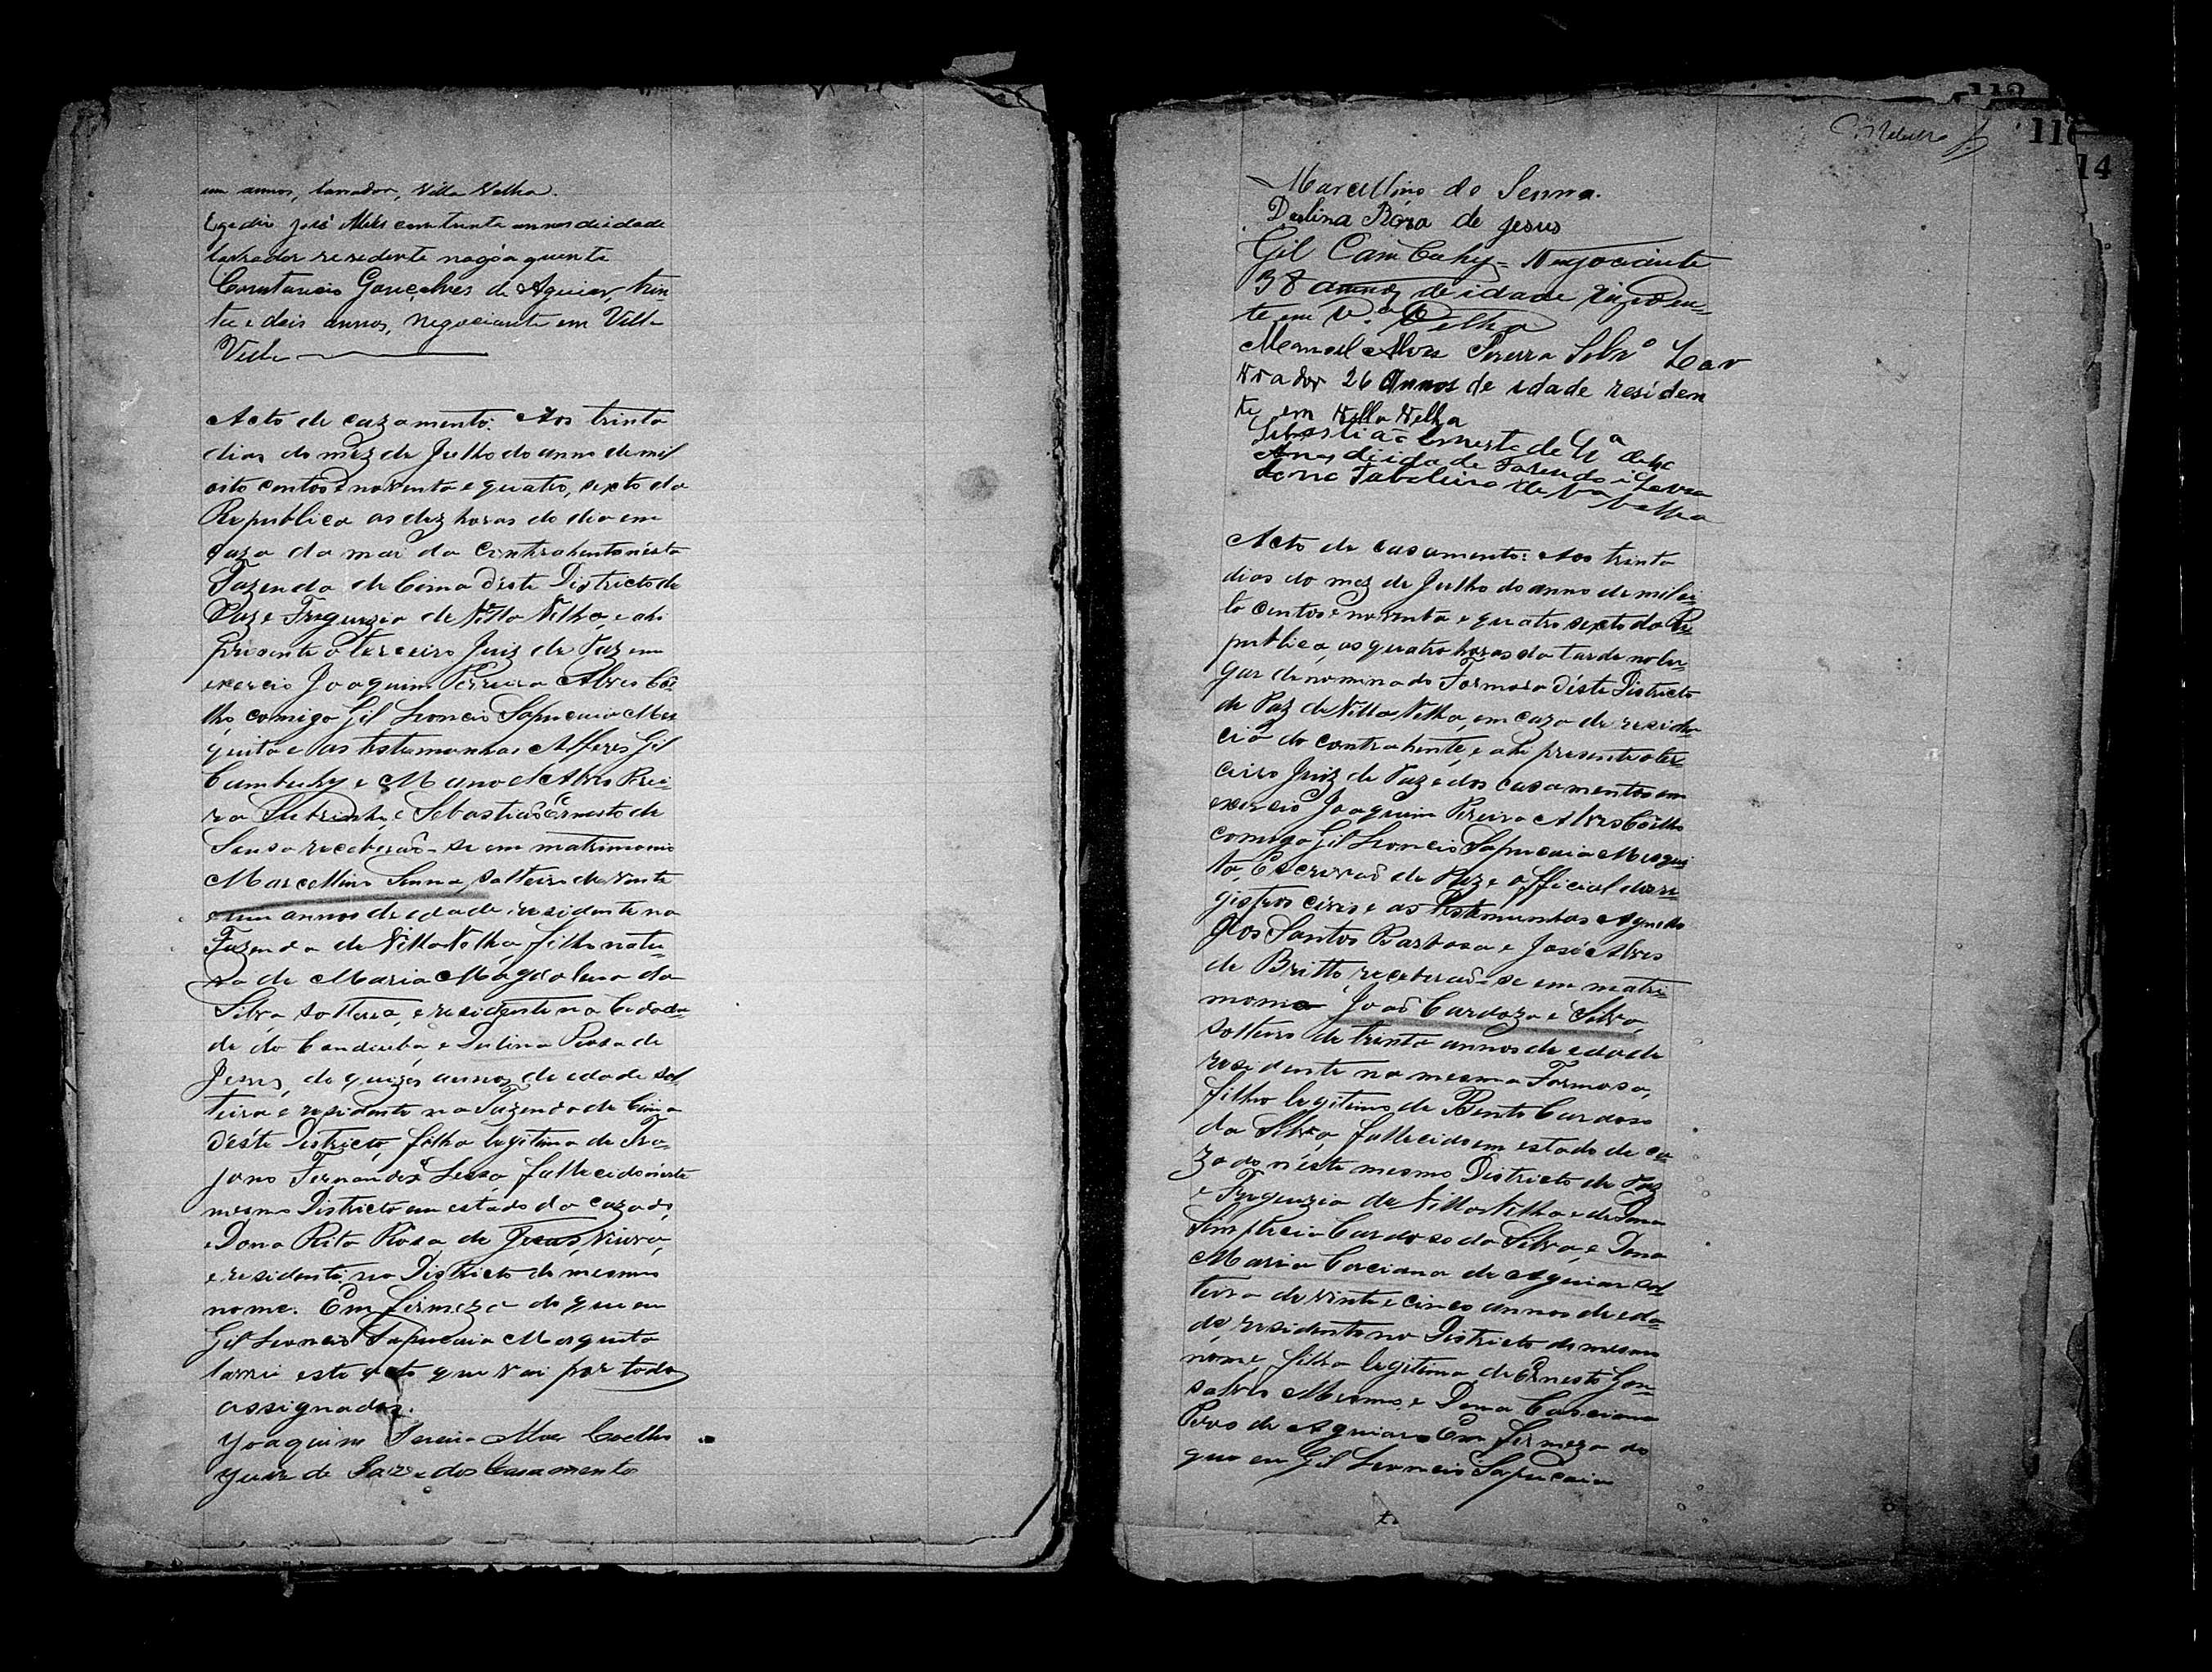 um annos, lavrador, Villa Velha.
Egedio José Alves com trinta annos de idade
lavrador residente
Constancio Gonçalves de Aguiar, trin-
ta e dois annos, negociante em Villa
Velha
Acto de cazamento: Aos trinta
dias do mez de Julho do anno de mil
oito centos e noventa e quatro, sexto da
Republica as dez horas do dia em
caza da mai da contrahente nésta
Fazenda de Cima déste Districto de
Paz e Freguezia de Villa Velha, e ahi
presente o terceiro Juiz de Paz em
exercio Joaquim Pereira Alves Coê-
lho, comigo Gil Leoncio Sapucaia Mes
quita e as testamunhas Alferes Gil
Cambuhy e Manoel Alves Perei-
ra Sobrinho, e Sebastião Ernesto de
Souza receberaõ-se em matrimonio
Marcellino Senna, solteiro de vinte
e um annos de edade residente na
Fazenda de Villa Velha, filho natu-
ra de Maria Magdalena da
Silva solteira, e residente na Cidade
de do Condeuba e Dulina Rosa de
Jesus, de quizes annos de edade sol
teira e residente na Fazenda de Cima
d'éste Districto, filha legitima de Tra-
jano Fernandes Lessa fallecido néste
mesmo Districto em estado da cazado,
e Dona Rita Rosa de Jesus, Viuva,
e residente no Districto do mesmo
nome. Em firmeza do que eu
Gil Leoncio Sapucaia Mesquita
lavrei este acto que vai por todos
assignados.
Joaquim Pereira Alves Coelho
Juiz de Paz e dos Casamento
113
114
Marcellino de Senna.
Dulina Roza de Jesus
Gil Cambuhy - Negociante
38 annos de idade rezeden-
te em Vª Velha
Manoel Alves Pereira Sobrº Lav
vrador 26 Annos de idade residen
te em Villa Velha
Sebastião Ernesto de
Annos di idade Fazenda i Lavra
do no Taboleiro de Va Velha
Acto de casamento: Aos trinta
dias do mez de Julho do anno de mil oi-
to centos e noventa e quatro sexto da Re-
publica, as quatro horas da tarde no lu-
gar denominado Formosa déste Districto
de Paz de Villa Velha, em caza de residen-
cia do contrahente, e ahi presente o ter-
ceiro Juiz de Paz e dos casamentos em
exercio Joaquim Pereira Alves Coêlho
comigo Gil Leoncio Sapucaia Mesqui-
ta, Escrivaõ de Paz e official do re-
gistros civis e as Testamunhas Agnello
dos Santos Barbosa e José Alves
de Britto, receberaõ-se em matri-
monio Joaõ Cardozo e Silva,
solteiro de trinta annos de edade
residente na mesma Formosa,
filho legitimo de Bento Cardoso
da Silva, fallecido em estado de ca-
zado n'éste mesmo Districto de Paz
e Freguezia de Villa Velha e de Dona
Simplicia Cardoso da Silva, e Dona
Maria Carciana de Aguiar sol
teira de vinte e cinco annos de eda-
de, residente no Districto do mesmo
nome, filha legitima de Ernesto Gon-
salves Mesmo, e Dona Carciana
Roza de Aguiar. Em firmeza do
que eu Gil Leoncio Sapucaia